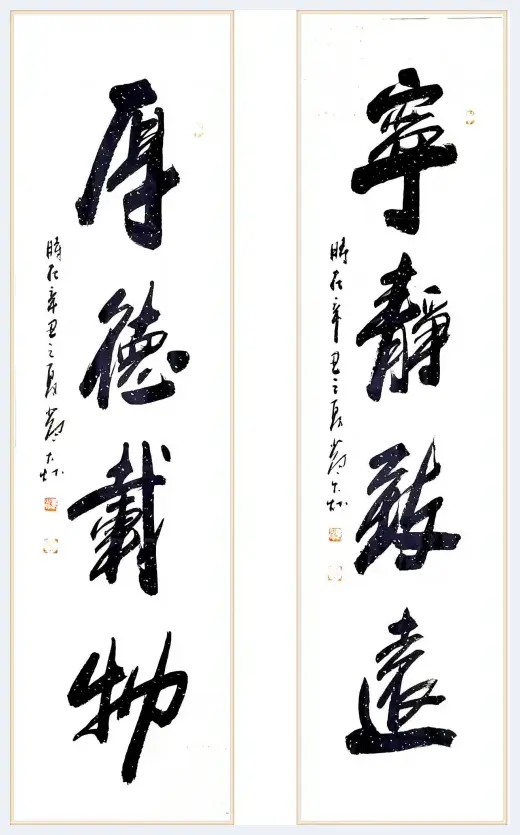 寧靜致遠
時在辛丑之夏
厚德載物
時在辛丑之夏